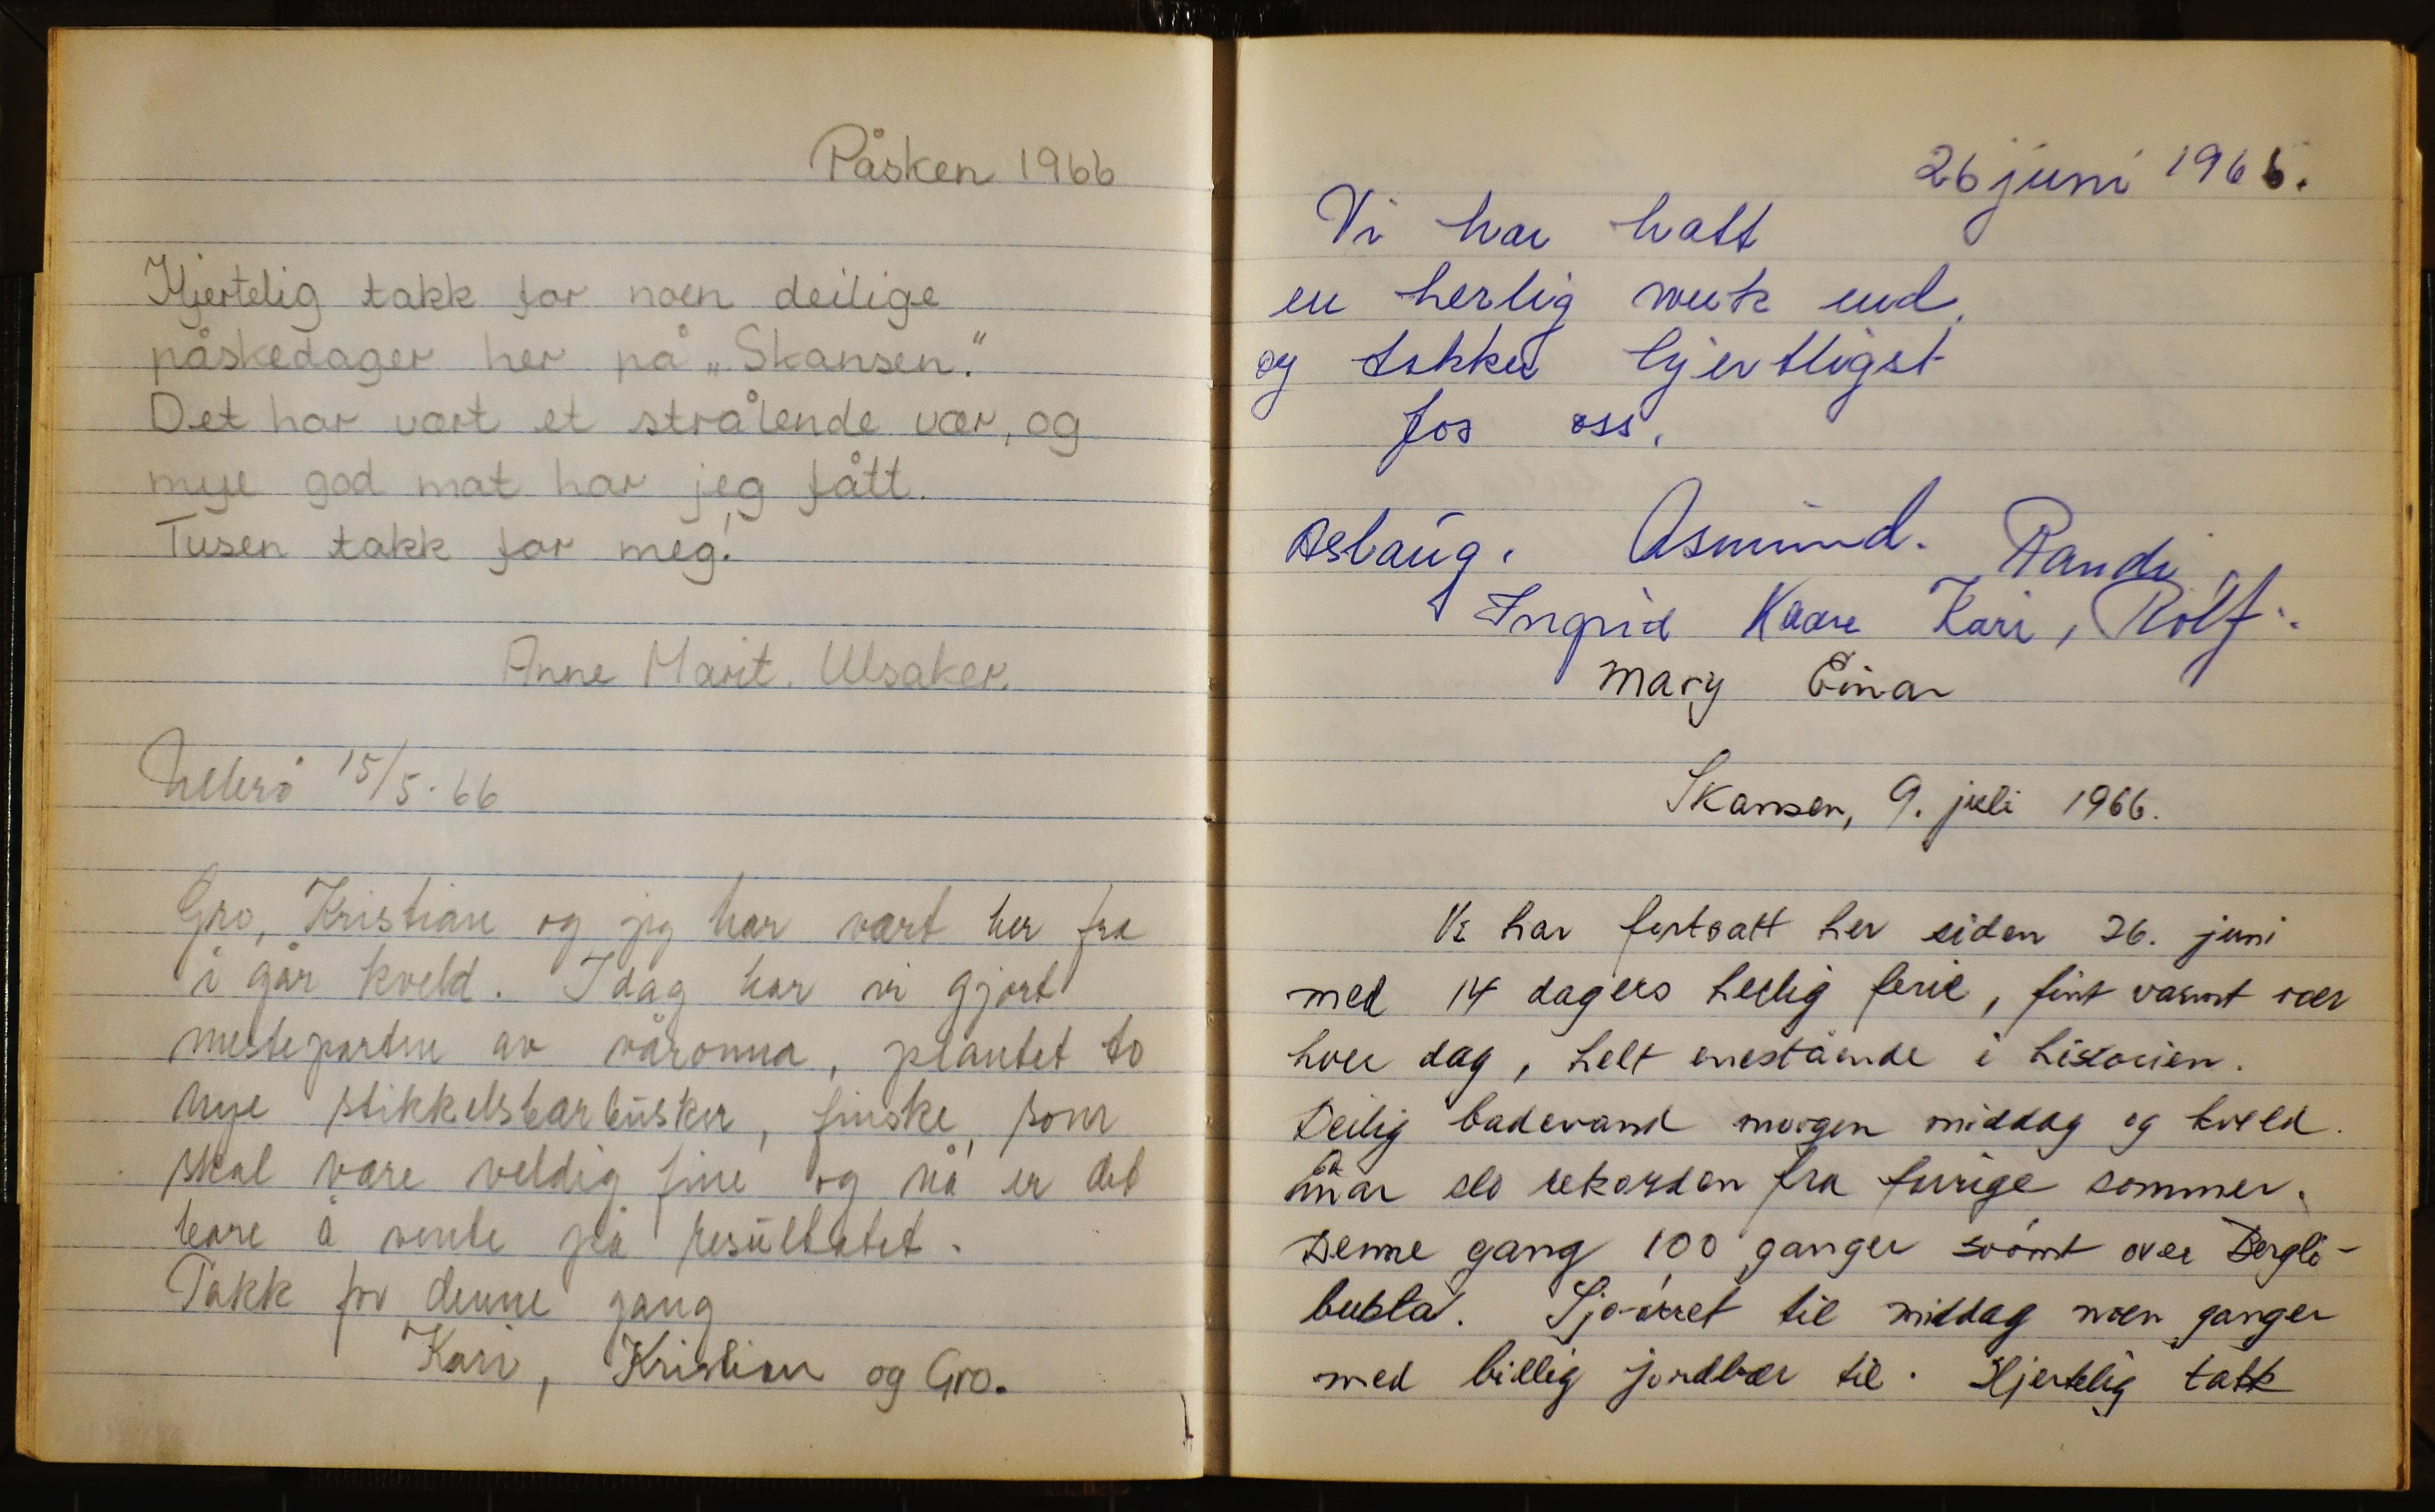 Påsken 1966
Hjertelig takk for noen deilige
påskedager her på „Skansen."
Det har vært et strålende vær, og
mye god mat har jeg fått.
Tusen takk for meg!
Anne Marit. Ulsaker.
15/5.66
Gro, Kristian og jeg har vært her fra
i går kveld. I dag har vi gjort
mesteparten av våronna, plantet to
nye stikkelsbærbusker, finske, som
skal være veldig fine og nå er det
bare å vente på resultatet.
Takk for denne gang
Kari, Kristian og Gro.
26 juni 1966.
Vi har hatt
en herlig week end,
og takker hjertligst
for oss.
Aslaug. Asmund. Randi
Ingrid Kaare Kari, Rolf.
Mary Einar
Skansen, 9. juli 1966.
Vi har fortsatt her siden 26. juni
med 14 dagers herlig ferie, fint varmt vær
hver dag, helt enestående i historien.
Deilig badevand morgen middag og kveld.
Einar slo rekorden fra forrige sommer.
Denne gang 100 ganger svømt over Bergli-
bukta. Sjø-ørret til middag noen ganger
med billig jordbær til. Hjertelig takk